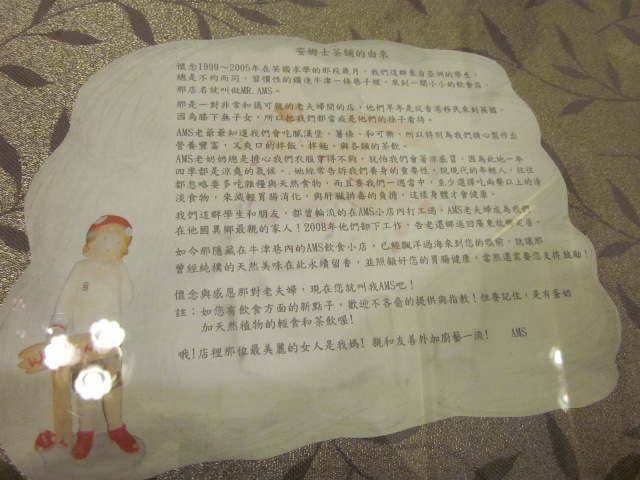 安姆士茶舖的由來
懷念1999～2005年在英國求學的那段歲月，我們這群來自亞洲的學生，
總是不約而同，習慣性的鑽進牛津一條巷子裡，來到一間小小的飲食店，
那店名就叫做MR.AMS。
那是一對非常和藹可親的老夫婦開的店，他們早年是從香港移民來到英國，
因為膝下無子女，所以把我們都當成是他們的孫子看待。
AMS老爺爺知道我們會吃膩漢堡、薯條、和可樂，所以特別為我們精心製作出
營養豐富，又爽口的拌飯、拌麵、與各類的茶飲。
AMS老奶奶總是擔心我們衣服穿得不夠，就怕我們會著涼感冒，因為此地一年
四季都是涼爽的氣候。她經常告訴我們養身的重要性，說現代的年輕人，往往
都忽略要多吃雜糧與天然食物，而且要我們一週當中，至少選擇吃兩餐以上的清
淡食物，來減輕胃腸消化，與肝臟排毒的負擔，這樣身體才會健康。
我們這群學生和朋友，都曾輪流的在AMS小店內打工過，AMS老夫婦成為我們
在他國異鄉最親的家人！2008年他們卸下工作，告老還鄉返回廣東故鄉定居。
如今那隱藏在牛津巷內的AMS飲食小店，已經飄洋過海來到您的眼前，就讓那
曾經純樸的天然美味在此永續留香，並照顧好您的胃腸健康，當然還需要您支持鼓勵！
懷念與感恩那對老夫婦，現在您就叫我AMS吧！
註：如您有飲食方面的新點子，歡迎不吝嗇的提供與指教！但要記住，是有蛋奶
加天然植物的輕食和茶飲喔！
哦！店裡那位最美麗的女人是我媽！親和友善外加廚藝一流！ AMS